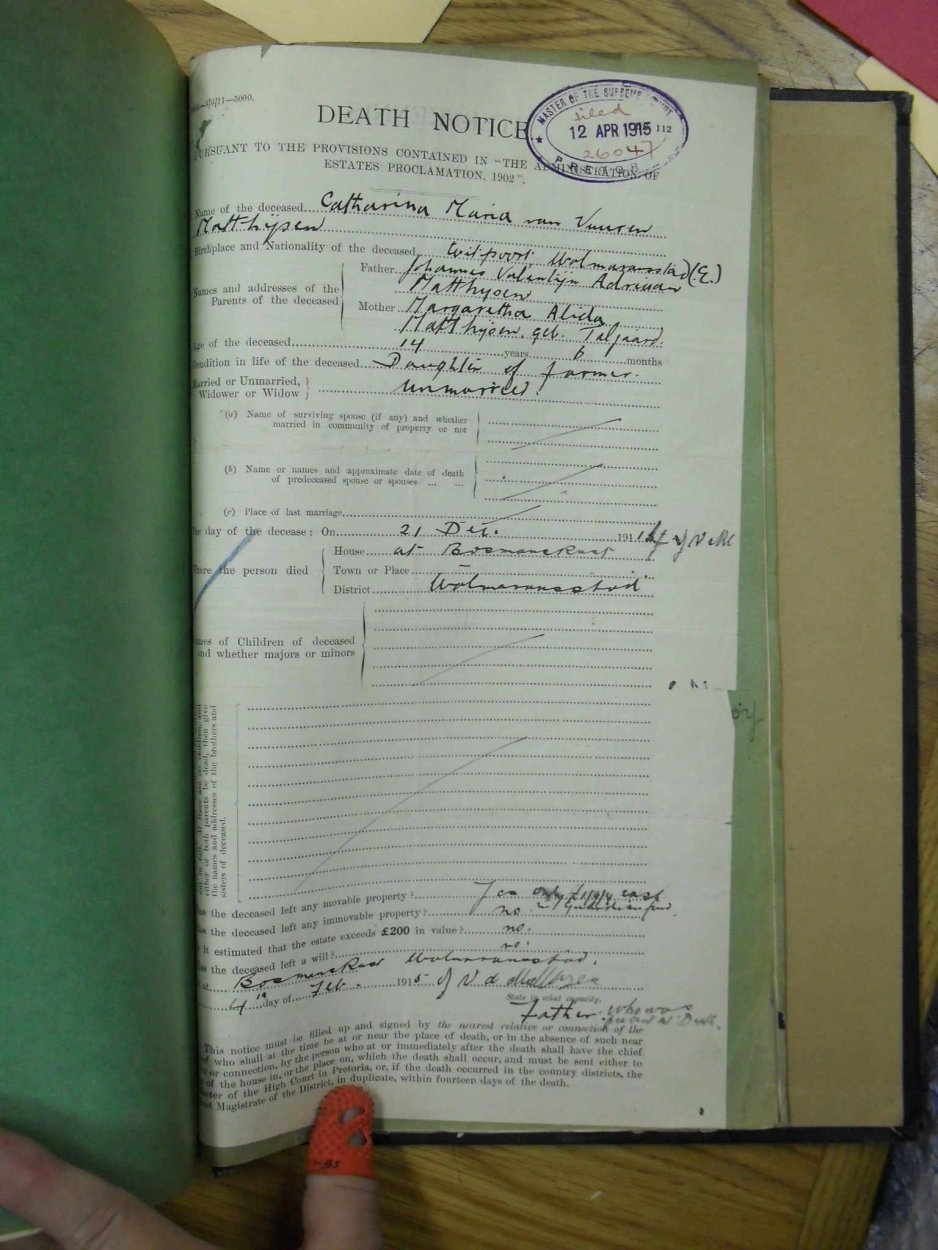 —5000.
DEATH NOTICE
MASTER OF THE SUPREME COURT
filed
12 APR 1915
26047
PRETORIA
112
PURSUANT TO THE PROVISIONS CONTAINED IN "THE ADMINISTRATION OF
ESTATES PROCLAMATION, 1902".
Name of the deceased Catharina Maria van Vuuren
Matthysen
Birthplace and Nationality of the deceased Witpoort Wolmaransstad (E.)
Names and addresses of the Parents of the deceased
Father Johannes Valentyn Adriaan
Matthysen
Mother Margaretha Alida
Matthysen geb. Taljaard.
Age of the deceased 14 years 6 months
Condition in life of the deceased Daughter of farmer.
Married or Unmarried, Widower or Widow } Unmarried.
(a) Name of surviving spouse (if any) and whether
married in community of property or not
(b) Name or names and approximate date of death
of predeceased spouse or spouses ... ...
(c) Place of last marriage
The day of the decease: On 21 Dec. 1914
Where the person died
House at Bosmansrust
Town or Place –
District Wolmaransstad
Names of Children of deceased
and whether majors or minors
either or both parents be dead, then give
the names and addresses of the brothers and
sisters of deceased.
Has the deceased left any movable property? Yes only cash
in Guardian fund.
Has the deceased left any immovable property? no
Is it estimated that the estate exceeds £200 in value? no.
Has the deceased left a will? no.
at Bosmansrust Wolmaransstad.
4th day of Feb. 1915 J V A Matthysen
State in what capacity.
Father who was
present at Death.
This notice must be filled up and signed by the nearest relative or connection of the
who shall at the time be at or near the place of death, or in the absence of such near
or connection, by the person who at or immediately after the death shall have the chief
of the house in, or the place on, which the death shall occur, and must be sent either to
Master of the High Court in Pretoria, or, if the death occurred in the country districts, the
Magistrate of the District, in duplicate, within fourteen days of the death.